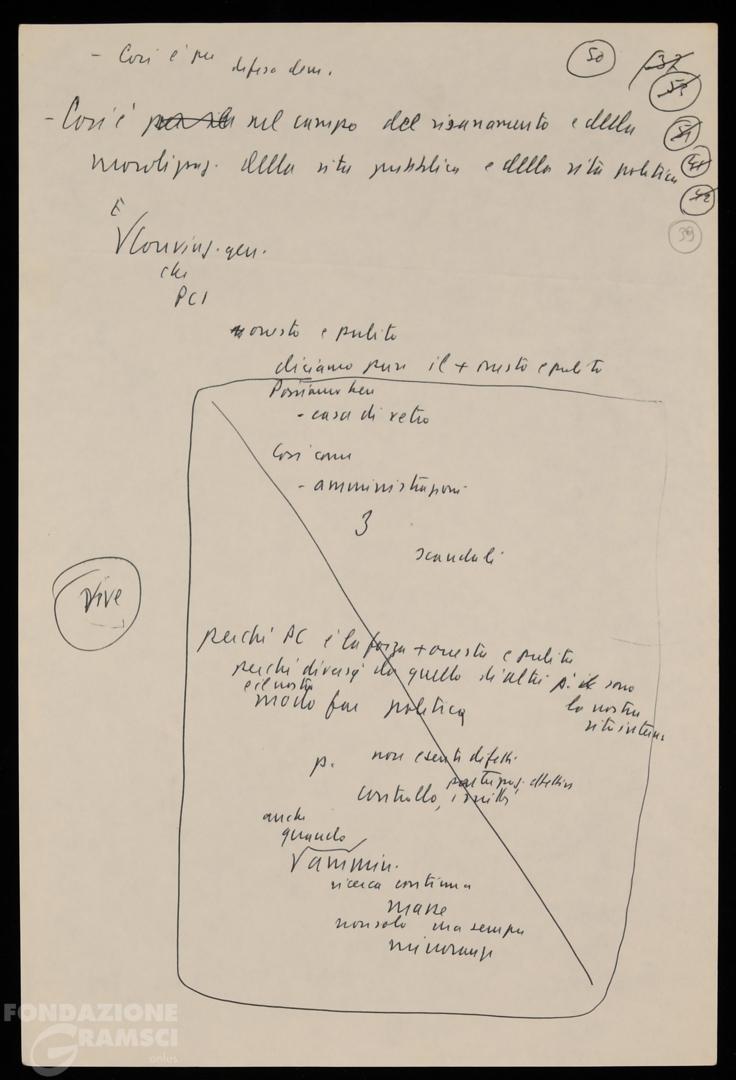 - Così è per difesa dem.
50
37
53
51
41
42
39
- Così è per la nel campo del risanamento e della
moralizzaz. della vita pubblica e della vita politica
È
convinz. gen.
che
PCI
onesto e pulito
diciamo pure il + onesto e pulito
Possiamo ben
- casa di vetro
Così come
- amministrazioni
3
scandali
Vive
perché PC è la forza + onesta e pulita
perché diversa da quello di altri p. sono
e il nostro
la nostra
modo far politica
vita interna
p. non esenti difetti
controllo,
anche
quando
ammin.
ricerca continua
masse
non solo ma sempre
minoranze
FONDAZIONE
GRAMSCI
onlus